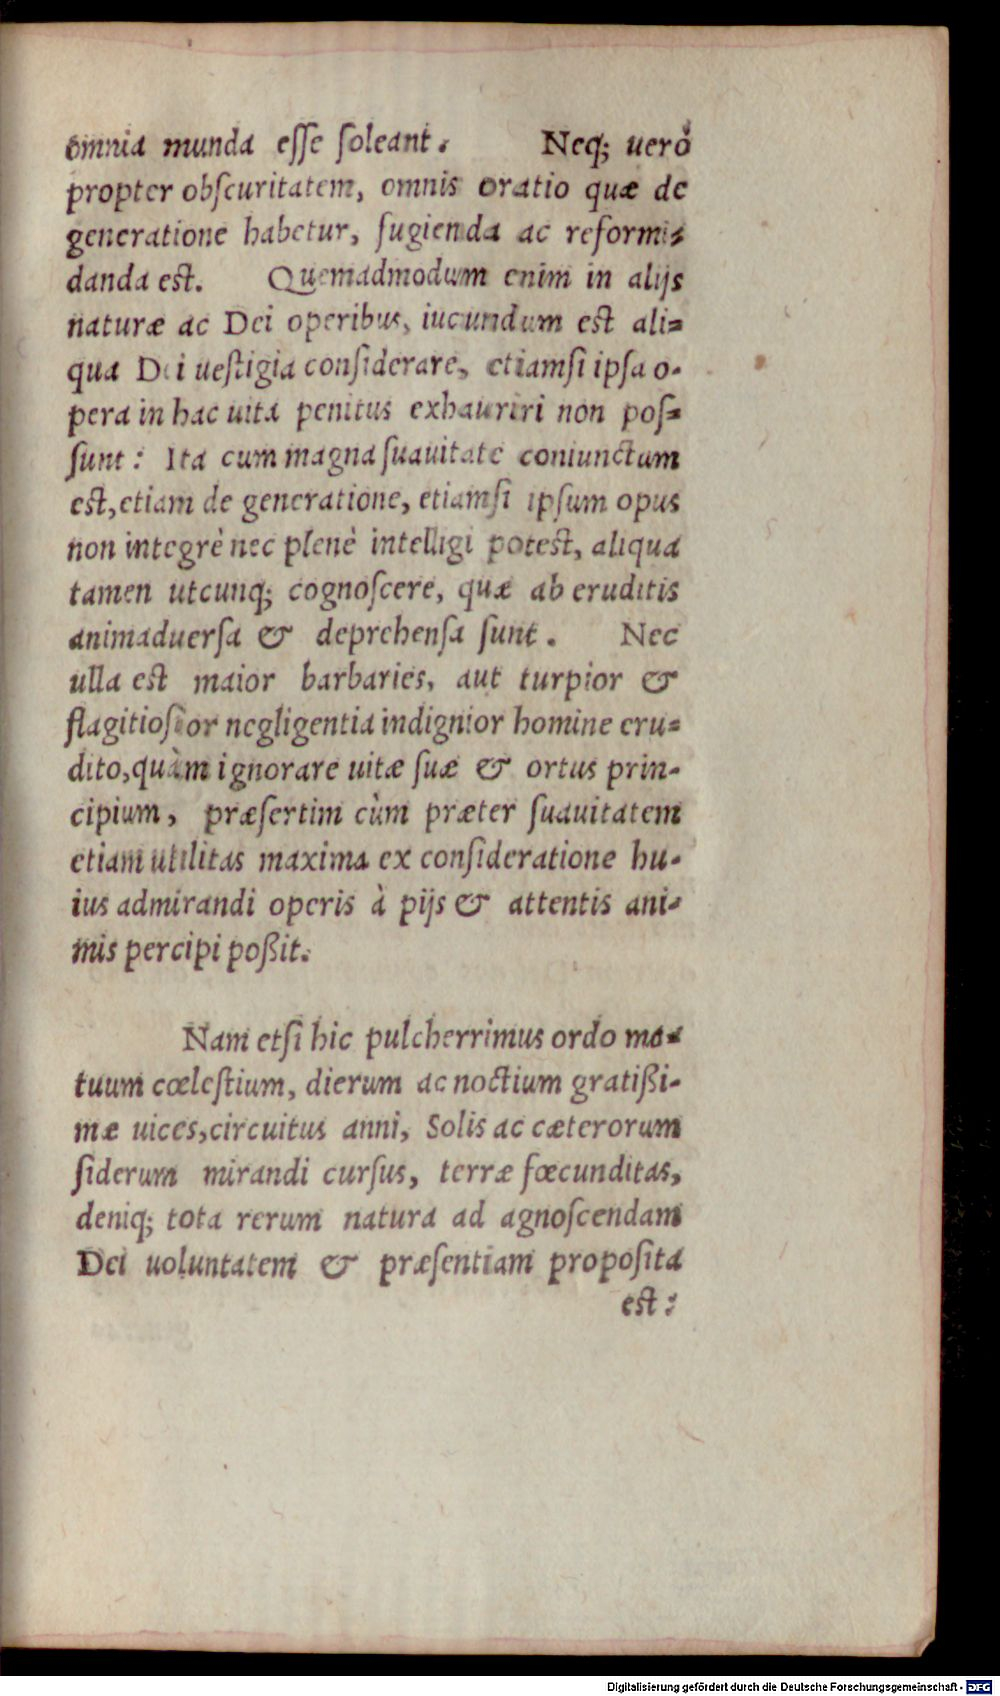 omnia munda esse soleant. Neq; uerò
propter obscuritatem, omnis oratio quæ de
generatione habetur, fugienda ac reformi-
danda est. Quemadmodum enim in alijs
naturæ ac Dei operibus, iucundum est ali-
qua Dei uestigia considerare, etiamsi ipsa o-
pera in hac uita penitus exhauriri non pos-
sunt: Ita cum magna suauitate coniunctum
est, etiam de generatione, etiamsi ipsum opus
non integrè nec plenè intelligi potest, aliqua
tamen utcunq; cognoscere, quæ ab eruditis
animaduersa & deprehensa sunt. Nec
ulla est maior barbaries, aut turpior &
flagitiosior negligentia indignior homine eru-
dito, quàm ignorare uitæ suæ & ortus prin-
cipium, præsertim cùm præter suauitatem
etiam utilitas maxima ex consideratione hu-
ius admirandi operis à pijs & attentis ani-
mis percipi poßit.
Nam etsi hic pulcherrimus ordo mo-
tuum cœlestium, dierum ac noctium gratißi-
mæ uices, circuitus anni, Solis ac cæterorum
siderum mirandi cursus, terræ fœcunditas,
deniq; tota rerum natura ad agnoscendam
Dei uoluntatem & præsentiam proposita
est:
Digitalisierung gefördert durch die Deutsche Forschungsgemeinschaft - DFG